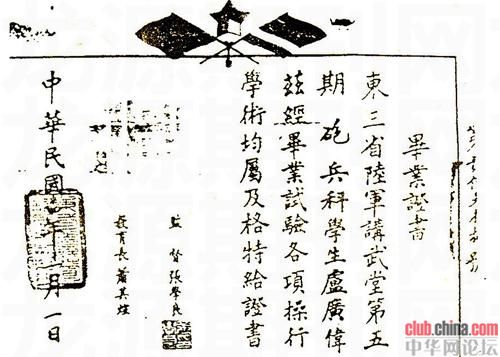 畢業證書
東三省陸軍講武堂第五
期 砲兵科學生盧廣偉
茲經畢業試驗各項操行
學術均屬及格特給證書
監督張學良
教育長蕭其煊
中華民國 年 月一日
club.china.com
中华网论坛